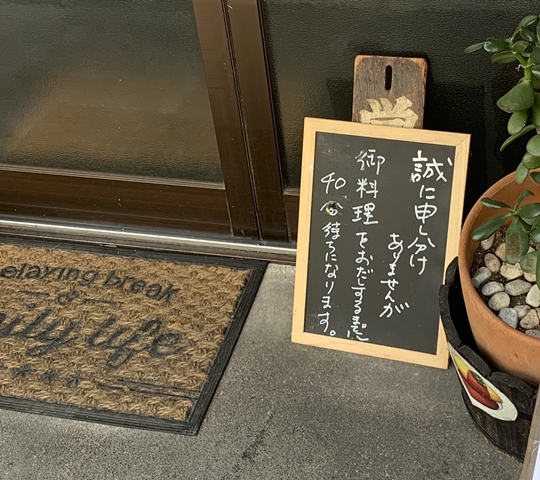 誠に申し分け
ありませんが
御料理をおだしするまでに
40分待ちになります。
営
elaxing break
ily life